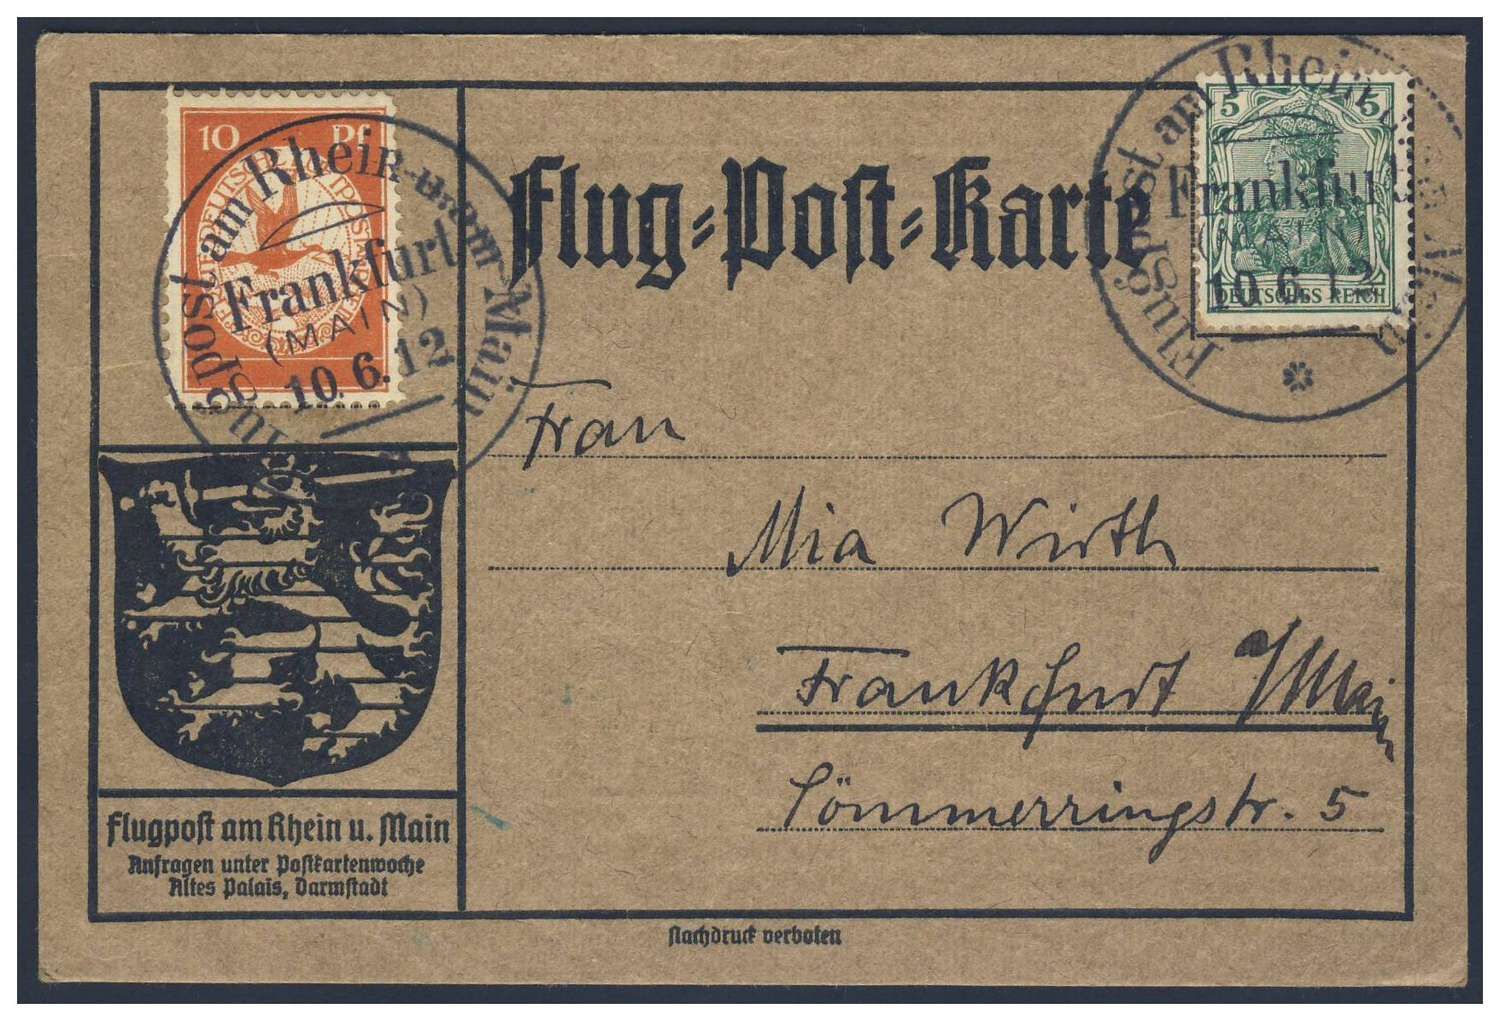 10 Pf
Flugpost am Rhein u. am Main
Frankfurt
(MAIN)
10.6.12
Flug=Post=Karte
5 5
DEUTSCHES REICH
Flugpost am Rhein
Frankfurt
(MAIN)
10.6.12
Frau
Mia Wirth
Frankfurt a/Main
Sömmerringstr. 5
Flugpost am Rhein u. Main
Anfragen unter Postkartenwoche
Altes Palais, Darmstadt
Nachdruck verboten